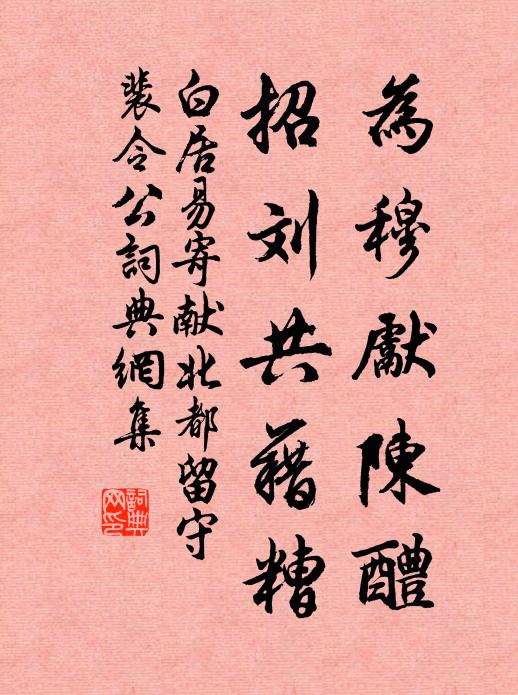 為穆獻陳醴
招刘共藉糟
白居易寄献北都留守
裴令公詞典網集
詞典网印